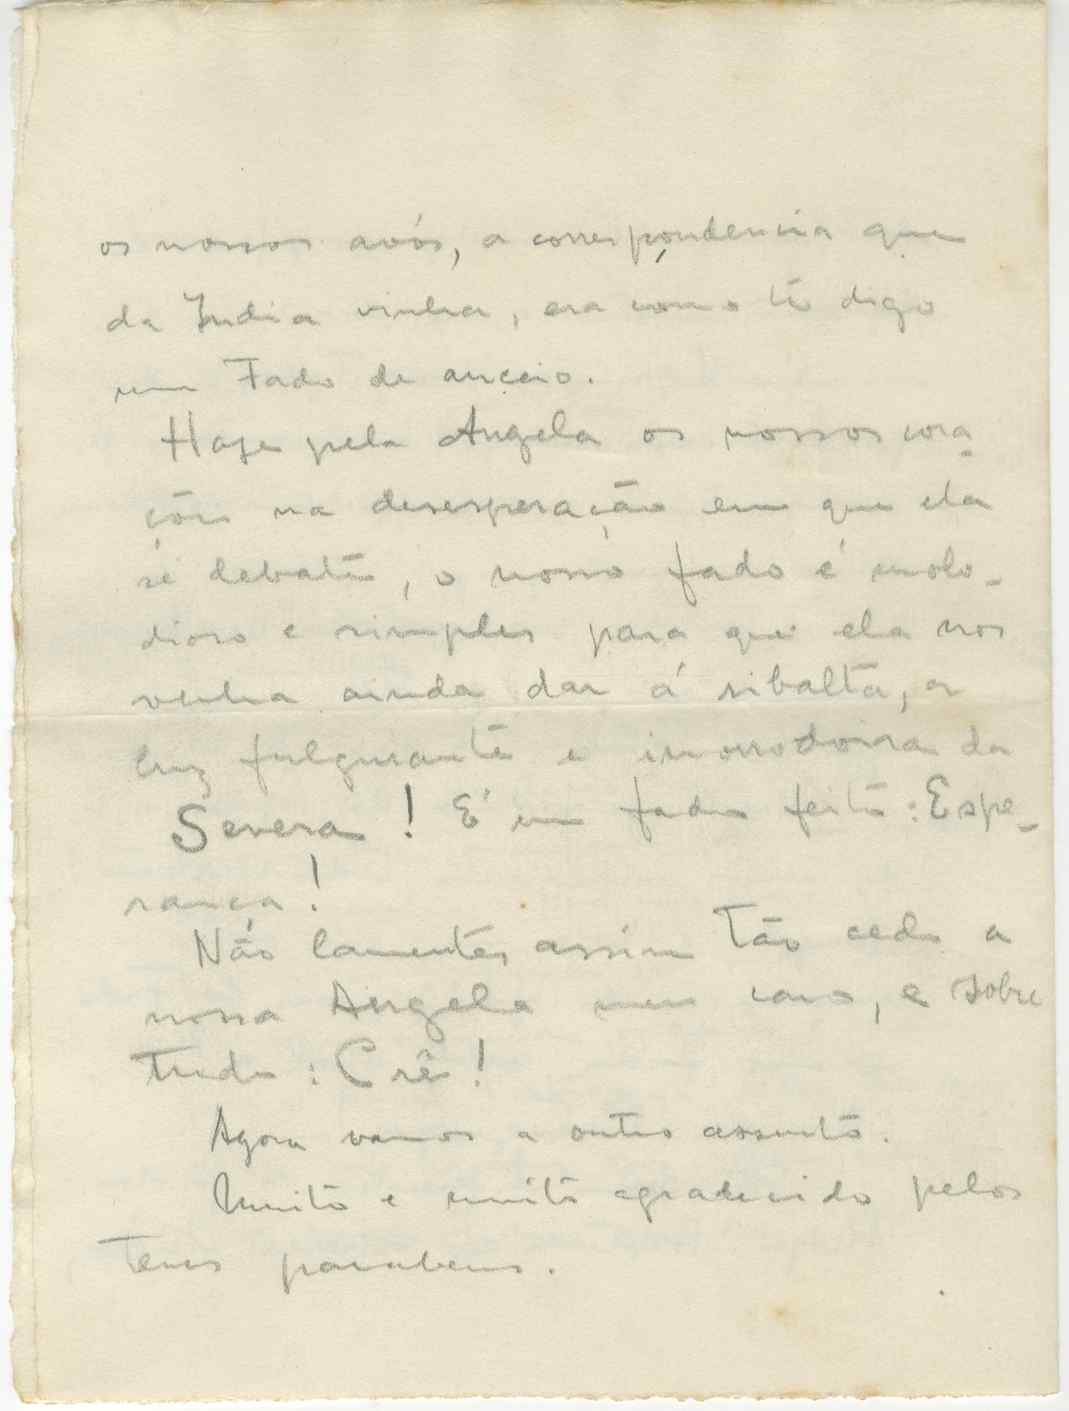 os nossos avós, a correspondencia que
da India vinha, era como te digo
um Fado de anceio.
Hoje pela Angela os nossos cora-
çõis na desesperação em que ela
se debate, o nosso fado é molo-
dioso e simples para que ela nos
venha ainda dar á ribalta, a
luz fulgurante e da
Severa! E' um fado feito: Espe-
rança!
Não lamentes assim Tão cedo a
nossa Angela meu caro, e sobre
Tudo: Crê!
Agora vamos a outro assunto.
Muito e muito agradecido pelos
Teus parabens.